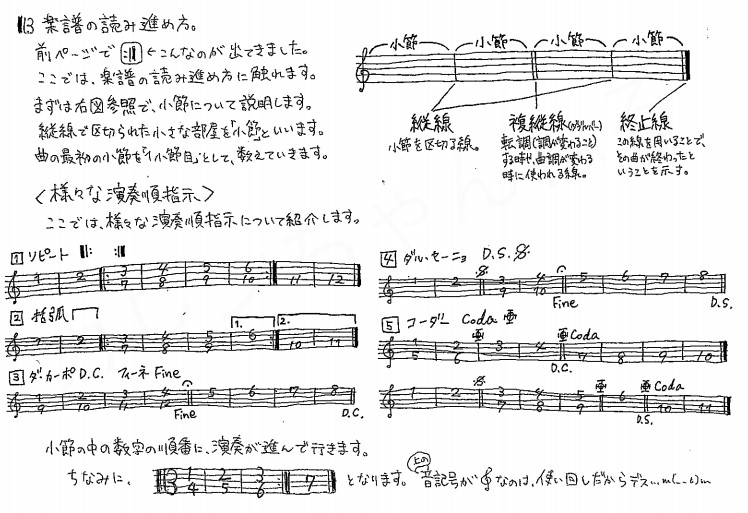 13 楽譜の読み進め方。
前ページで ←こんなのが出てきました。
ここでは、楽譜の読み進め方に触れます。
まずは右図参照で、小節について説明します。
縦線で区切られた小さな部屋を「小節」といいます。
曲の最初の小節を「1小節目」として、数えていきます。
小節 小節 小節 小節
縦線
小節を区切る線。
複縦線
転調(調が変わること)
する時や、曲調が変わる
時に使われる線。
終止線
この線を用いることで、
その曲が終わったと
いうことを示す。
<様々な演奏順指示>
ここでは、様々な演奏順指示について紹介します。
1 リピート
1 2 3 4 5 6 11 12
7 8 9 10
2 括弧
1. 2.
1 2 3 4 5 6
7 8 9 10 11
3 ダ・カーポ D.C. フィーネ Fine
1 2 3 4 5 6 7 8
9 10 11 12
Fine D.C.
4 ダル・セーニョ D.S.
1 2 3 4 5 6 7 8
9 10
Fine D.S.
5 コーダー Coda
Coda
1 2 3 4
5 6 7 8 9 10
D.C.
Coda
1 2 3 4 5 6
7 8 9 10 11
D.S.
小節の中の数字の順番に、演奏が進んで行きます。
ちなみに、
1 2 3
4 5 6 7
となります。
上の
音記号が なのは、使い回しだからデス...m(_ _)m